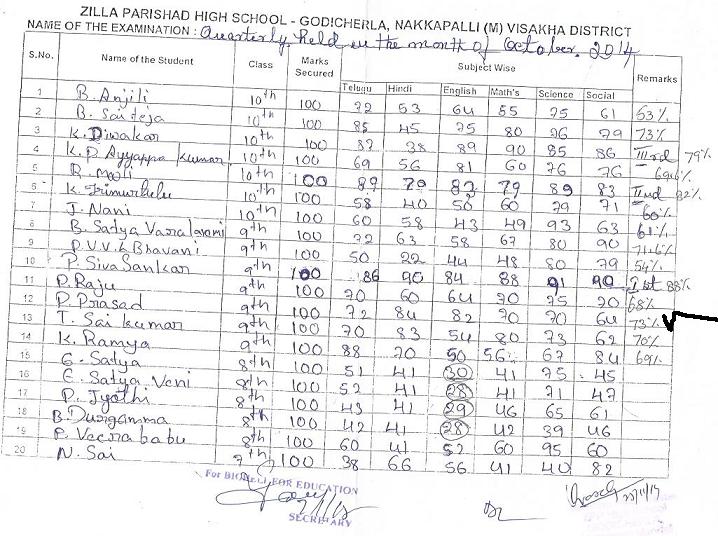 ZILLA PARISHAD HIGH SCHOOL - GODICHERLA, NAKKAPALLI (M) VISAKHA DISTRICT
NAME OF THE EXAMINATION : Quarterly held in the month of October. 2014
S.No. Name of the Student Class Marks Secured Subject Wise Remarks
Telugu Hindi English Math's Science Social
1 B. Anjili 10th 100 72 53 64 55 75 61 63%
2 B. Sai teja 10th 100 85 45 75 80 76 79 73%
3 K. Diwakar 10th 100 87 38 89 90 85 86 IIIrd 79%
4 K. D. Ayyappa Kumar 10th 100 69 56 81 60 76 76 69.6%
5 R. Mouli 10th 100 87 79 82 79 89 83 IInd 82%
6 K. Trimurthulu 10th 100 58 40 50 60 79 71 60%
7 J. Nani 10th 100 60 58 43 49 93 63 61%
8 B. Satya 9th 100 72 63 58 67 80 90 71.6%
9 P.V.V.L Bhavani 9th 100 50 22 44 48 80 79 54%
10 P. Siva Sankar 9th 100 86 90 84 88 91 90 Ist 88%
11 D. Raju 9th 100 70 60 64 70 75 70 68%
12 D. Prasad 9th 100 72 84 82 70 70 64 73%
13 T. Sai kumar 9th 100 70 83 54 80 73 62 70%
14 K. Ramya 9th 100 88 70 50 56 67 84 69%
15 G. Satya 8th 100 51 41 30 41 75 45
16 E. Satya Veni 8th 100 52 41 28 41 71 47
17 P. Jyothi 8th 100 43 41 29 46 65 61
18 B. Durgamma 8th 100 42 41 28 42 39 46
19 P. Veerababu 8th 100 60 41 52 60 95 60
20 N. Sai 7th 100 38 66 56 41 40 82
FOR EDUCATION
SECRETARY